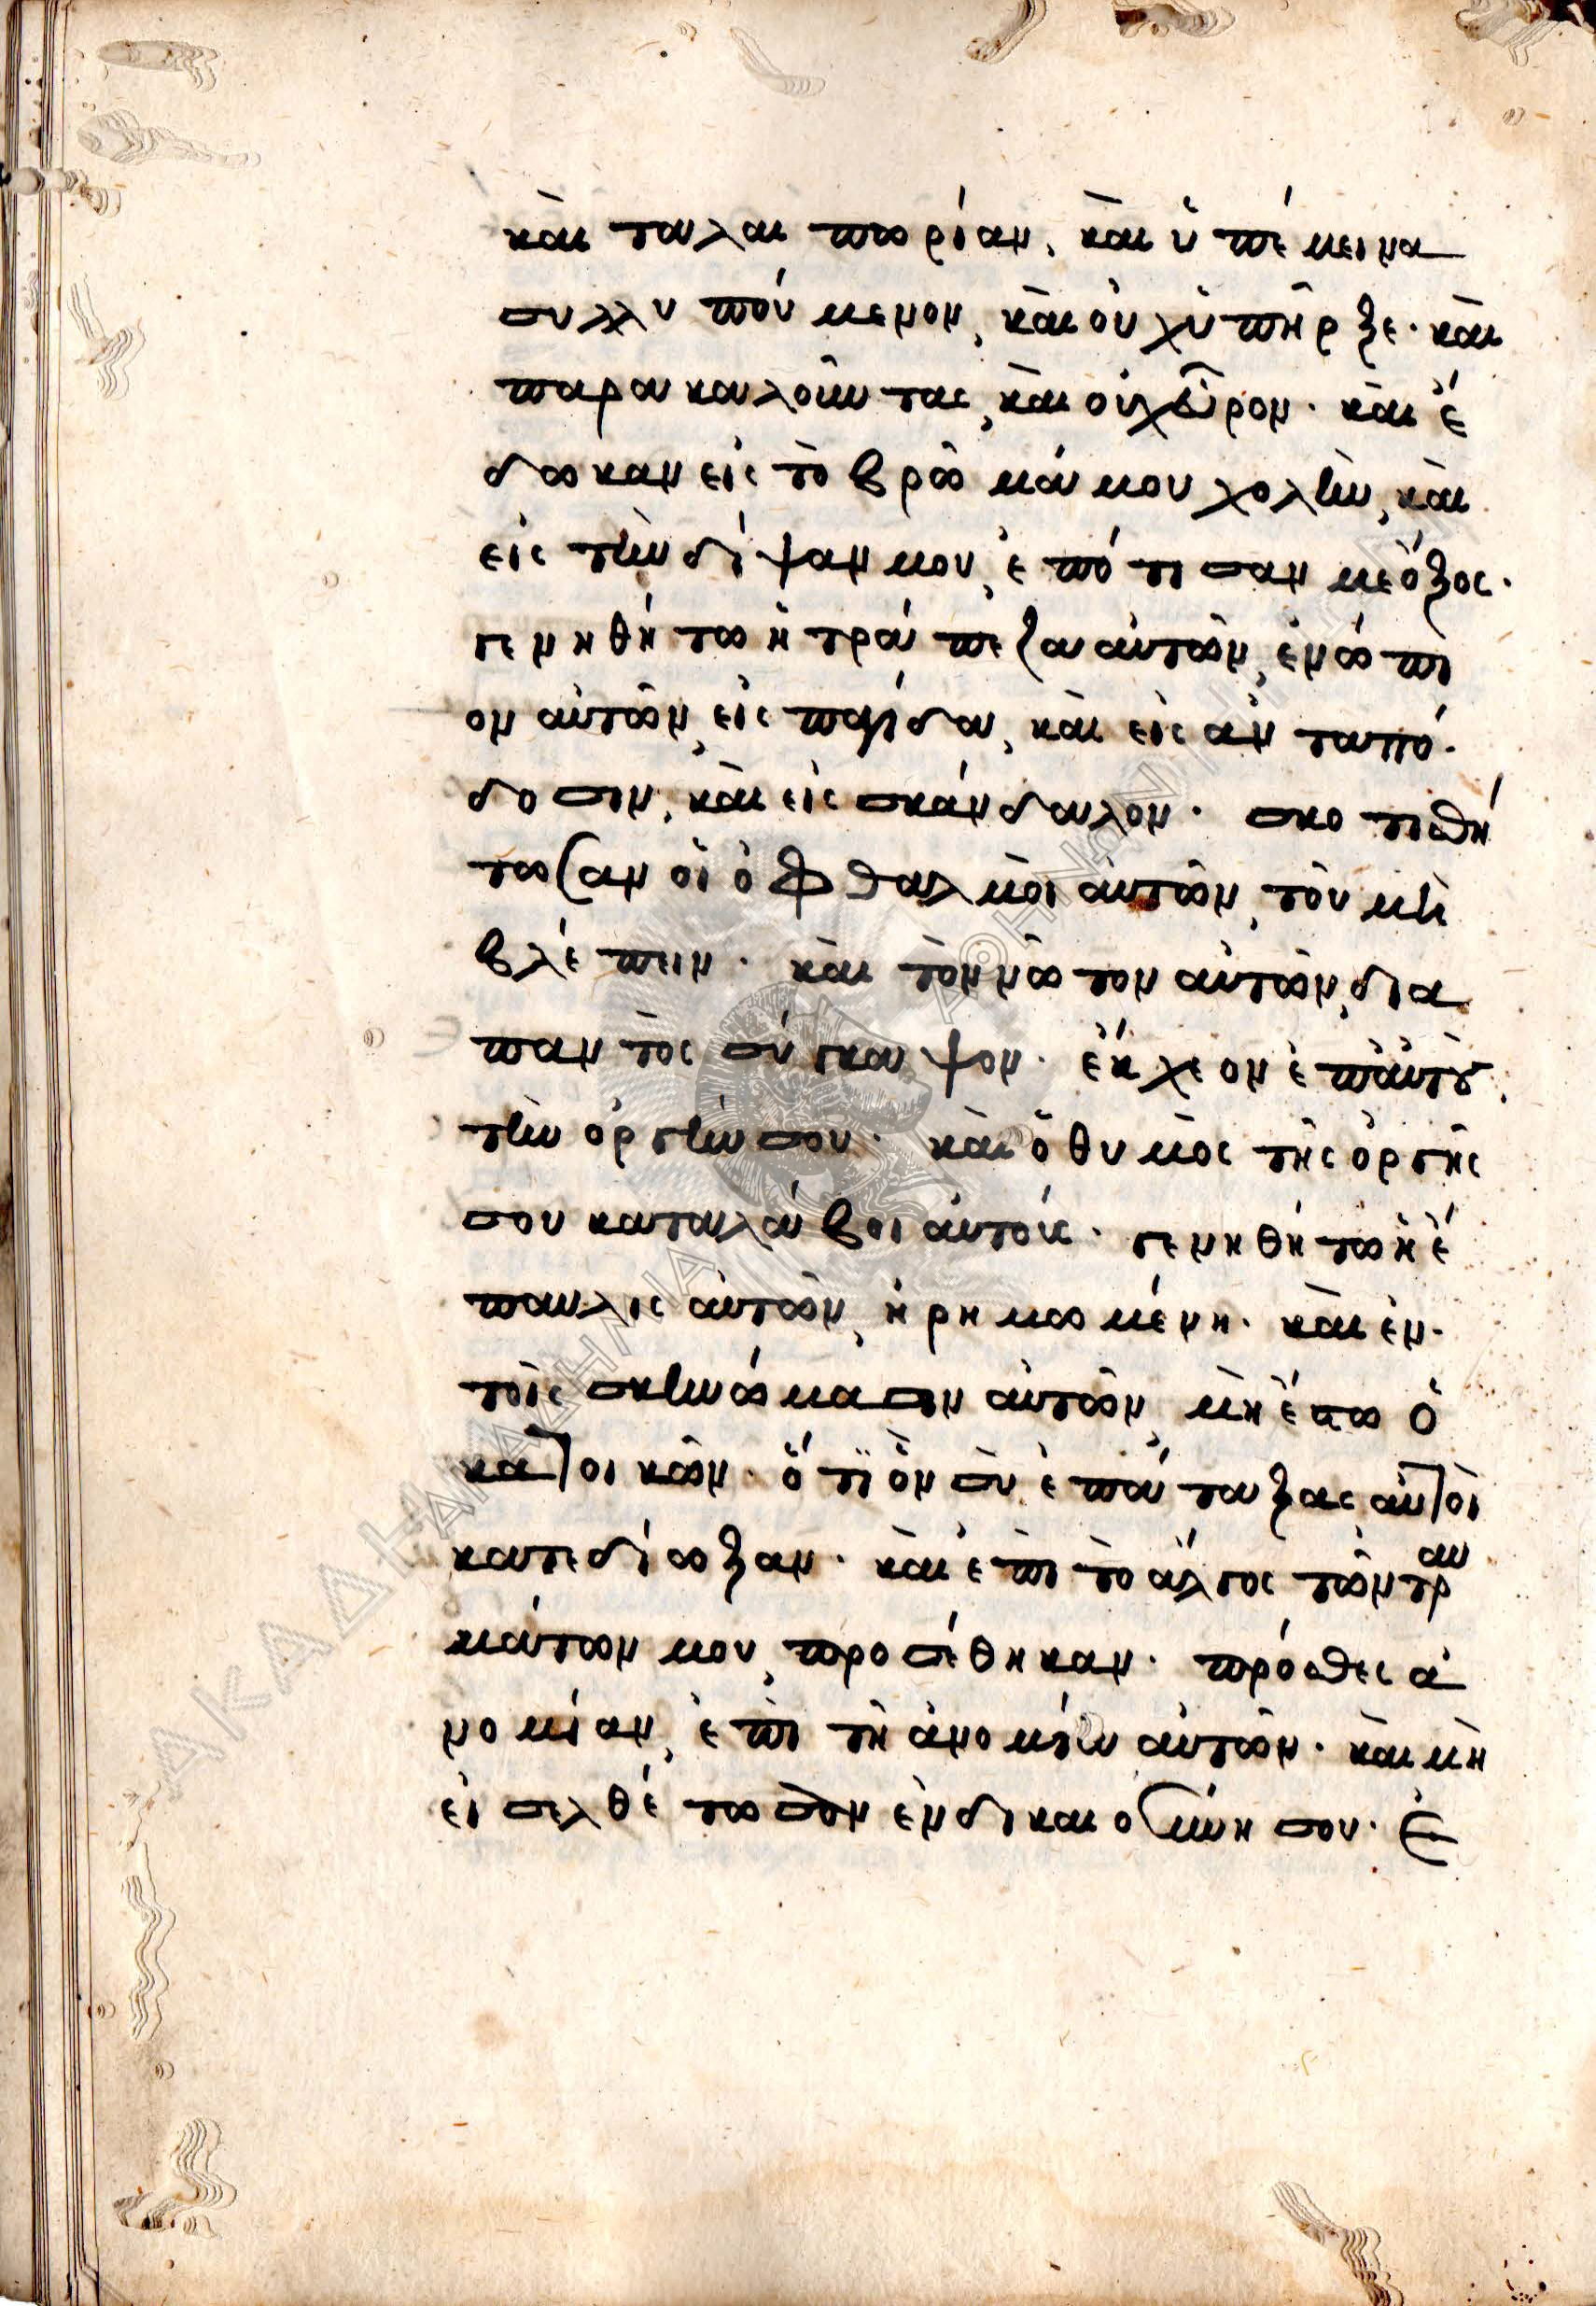 καὶ ταλαιπωρίαν, καὶ ὑπέμεινα
συλλυπούμενον, καὶ οὐχ ὑπῆρξε· καὶ
παρακαλοῦντας, καὶ οὐχ εὗρον· καὶ ἔ
δωκαν εἰς τὸ βρῶμά μου χολὴν, καὶ
εἰς τὴν δίψαν μου, ἐπότισαν με ὄξος·
γενηθήτω ἡ τράπεζα αὐτῶν, ἐνώπι
ον αὐτῶν, εἰς παγίδα, καὶ εἰς ἀνταπό·
δοσιν, καὶ εἰς σκάνδαλον· σκοτισθή
τωσαν οἱ ὀφθαλμοὶ αὐτῶν, τοῦ μὴ
βλέπειν· καὶ τὸν νῶτον αὐτῶν, δια
παντὸς σύγκαψον· ἔκχεον ἐπ' αὐτοὺς
τὴν ὀργήν σου· καὶ ὁ θυμὸς τῆς ὀργῆς
σου καταλάβοι αὐτούς· γενηθήτω ἡ ἔ
παυλις αὐτῶν, ἠρημωμένη· καὶ ἐν·
τοῖς σκηνώμασιν αὐτῶν, μὴ ἔστω ὁ
κατοικῶν· ὅτι ὃν σὺ ἐπάταξας αὐτοὶ
κατεδίωξαν· καὶ ἐπὶ τὸ ἄλγος τῶν τραυ
μάτων μου, προσέθηκαν· πρόσθες ἀ
νομίαν, ἐπὶ τῇ ἀνομίᾳ αὐτῶν· καὶ μὴ
εἰσελθέτωσαν ἐν δικαιοσύνῃ σου· ἐ